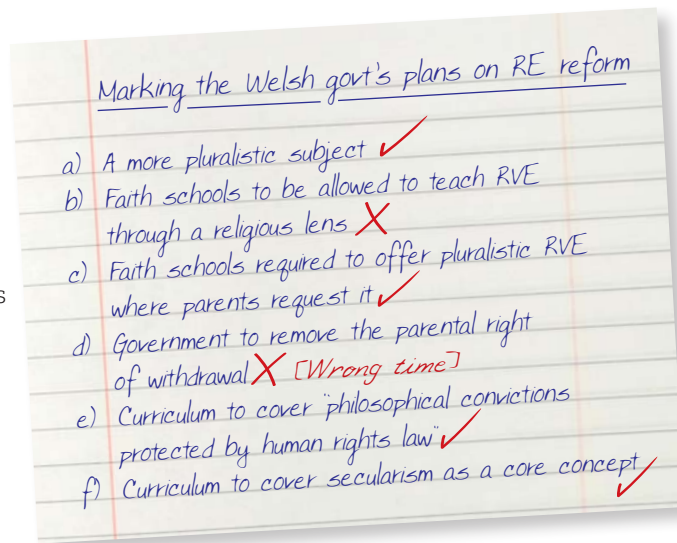 Marking the Welsh govt's plans on RE reform
a) A more pluralistic subject ✓
b) Faith schools to be allowed to teach RVE
through a religious lens X
c) Faith schools required to offer pluralistic RVE
where parents request it ✓
d) Government to remove the parental right
of withdrawal X [Wrong time]
e) Curriculum to cover "philosophical convictions
protected by human rights law" ✓
f) Curriculum to cover secularism as a core concept ✓
s